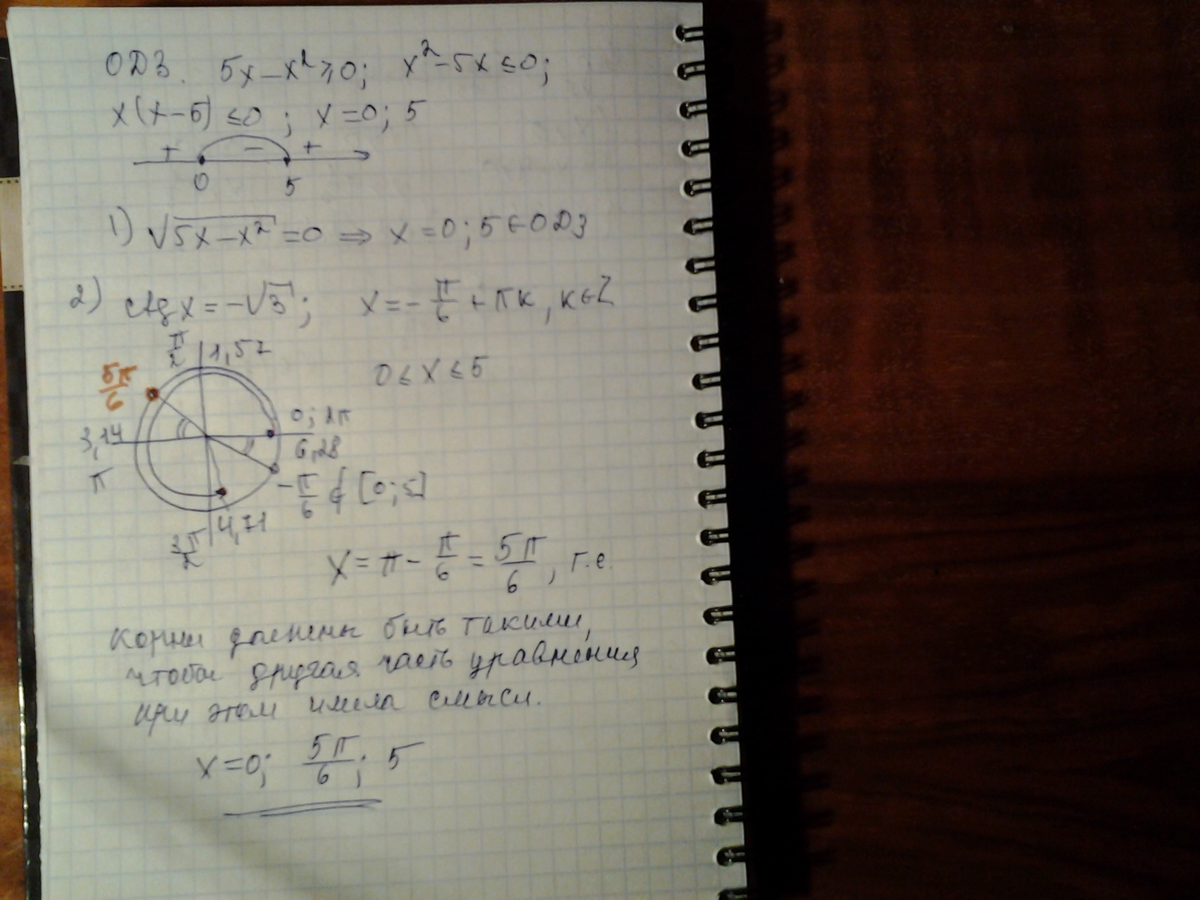 ОДЗ. 5x-x²≥0; x²-5x≤0;
x(x-5)≤0; x=0; 5
+ - +
0 5
1) √5x-x² =0 ⇒ x=0; 5∈ОДЗ
2) ctg x = -√3; x = -π/6 + πk, k∈Z
π/2 1,57
0≤x≤5
5π/6
0; 2π
3,14 6,28
π -π/6 ∉ [0; 5]
4,71
3π/2
x = π - π/6 = 5π/6, т.е.
корни должны быть такими,
чтобы другая часть уравнения
при этом имела смысл.
x=0; 5π/6; 5